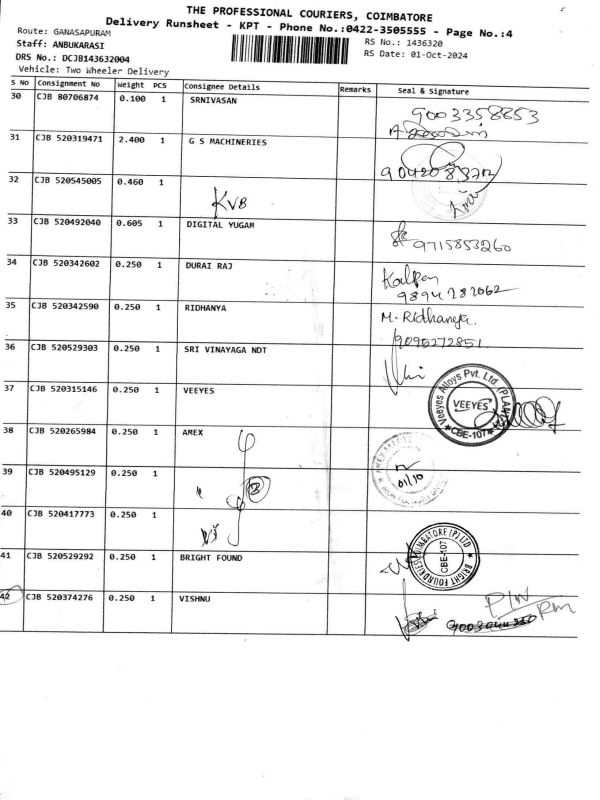 THE PROFESSIONAL COURIERS, COIMBATORE
Delivery Runsheet - KPT - Phone No.:0422-3505555 - Page No.:4
Route: GANASAPURAM
Staff: ANBUKARASI
DRS No.: DCJB143632004
Vehicle: Two Wheeler Delivery
RS No.: 1436320
RS Date: 01-Oct-2024
S No Consignment No Weight PCS Consignee Details Remarks Seal & Signature
30 CJB 80706874 0.100 1 SRNIVASAN 9003358853
31 CJB 520319471 2.400 1 G S MACHINERIES
32 CJB 520545005 0.460 1 KVB
33 CJB 520492040 0.605 1 DIGITAL YUGAM 9715853260
34 CJB 520342602 0.250 1 DURAI RAJ Kalpan
9894282062
35 CJB 520342590 0.250 1 RIDHANYA M. Ridhanya
9095272851
36 CJB 520529303 0.250 1 SRI VINAYAGA NDT
37 CJB 520315146 0.250 1 VEEYES Veeyes Alloys Pvt. Ltd VEEYES CBE-107
38 CJB 520265984 0.250 1 AMEX 01/10
39 CJB 520495129 0.250 1
40 CJB 520417773 0.250 1
41 CJB 520529292 0.250 1 BRIGHT FOUND BRIGHT FOUNDRIES COIMBATORE (P) LTD CBE-107
42 CJB 520374276 0.250 1 VISHNU